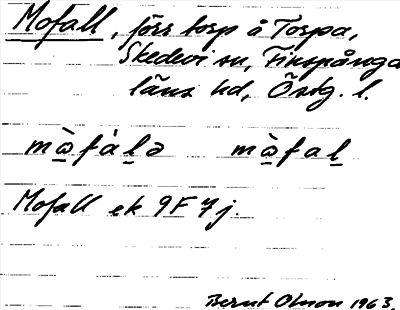 Mofall, förs torp å Torpa,
Skedevi sn, Finspånga
läns hd, Östg. l.
mò̱fàḻə mò̱faḻ
Mofall ek 9F 7j.
Bernt Olsson 1963.